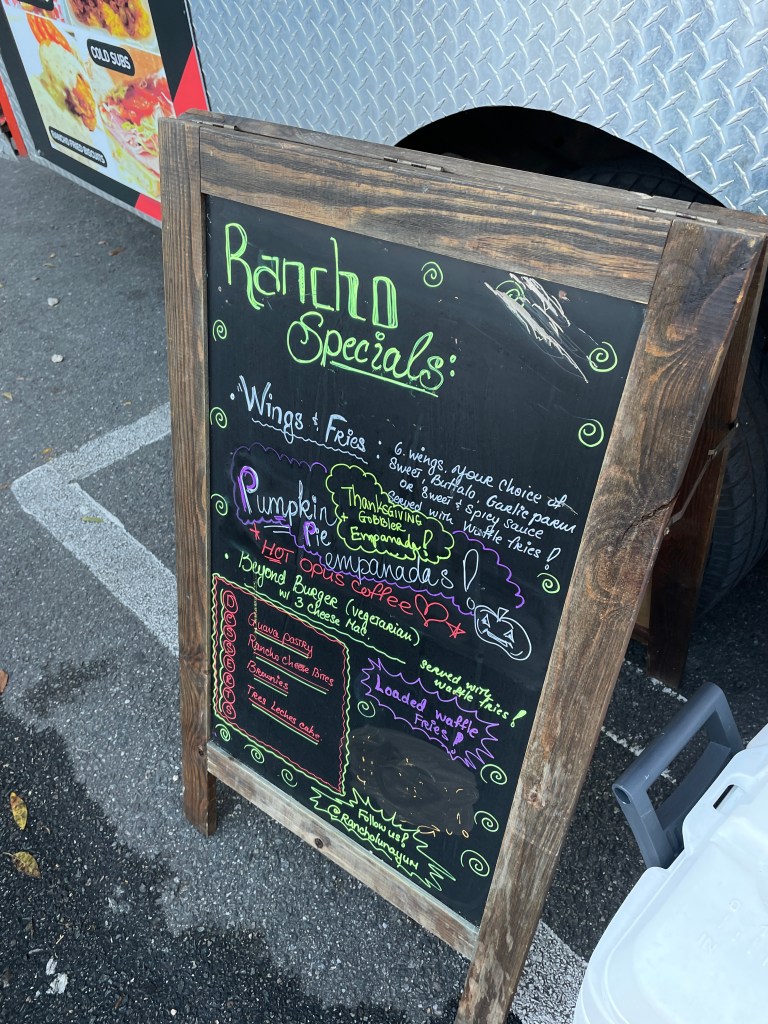 COLD SUBS
RANCHO FRIED BISCUITS
Rancho
Specials:
• Wings & Fries :
6 wings, your choice of
sweet, Buffalo, Garlic parm
or sweet & spicy sauce
served with waffle fries!
Pumpkin
Pie
empanadas!
THANKSGIVING
+ Gobbler
Empanada!
HOT OPUS Coffee
• Beyond Burger (vegetarian)
w/ 3 Cheese Mac
served with
waffle fries!
DESSERTS
Guava pastry
Rancho Cheese Bites
Brownies
Tres Leches cake
Loaded waffle
Fries!
Follow us!
@Rancholunayum